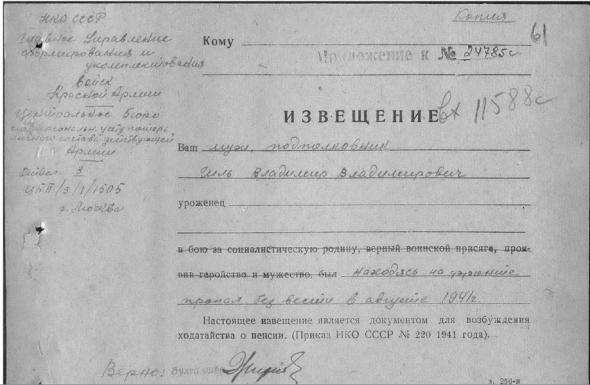 НКО СССР
Главное Управление
формирования и
укомплектования
Войск
Красной Армии
Центральное Бюро
учету потерь
личного состава действующей
Армии
Отдел 3
г. Москва
Копия
61
Кому
Приложение к № 24785с
ИЗВЕЩЕНИЕ
вх 11588с
Ваш муж, подполковник
Гиль Владимир Владимирович
уроженец
в бою за социалистическую родину, верный воинской присяге, проя-
вив геройство и мужество, был находясь на фронте
пропал без вести в августе 1941г.
Настоящее извещение является документом для возбуждения
ходатайства о пенсии. (Приказ НКО СССР № 220 1941 года).
Верно:
з. 250-н